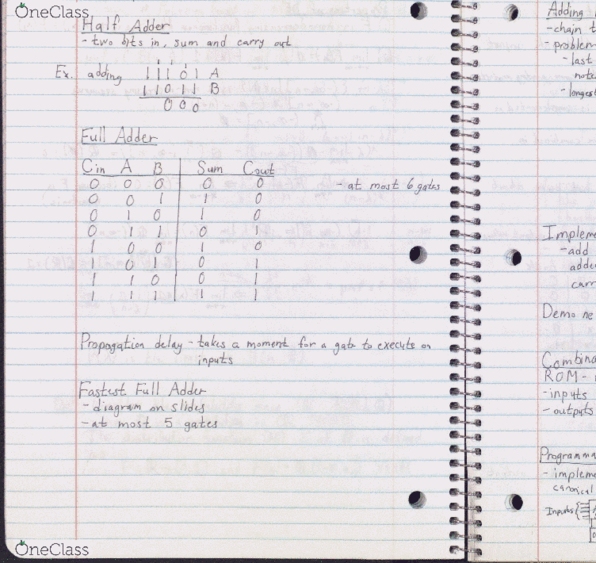 OneClass
Half Adder
- two bits in, sum and carry out
Ex. adding 1 1 1 0 1 A
1 1 0 1 1 B
0 0 0
Full Adder
Cin A B Sum Cout
0 0 0 0 0 - at most 6 gates
0 0 1 1 0
0 1 0 1 0
0 1 1 0 1
1 0 0 1 0
1 0 1 0 1
1 1 0 0 1
1 1 1 1 1
Propogation delay - takes a moment for a gate to execute on
inputs
Fastest Full Adder
- diagram on slides
- at most 5 gates
OneClass
Adding
- chain t
- problem
- last
note
- longest
Impleme
- add
adde
carr
Demo ne
Combina
ROM -
- inputs
- outputs
Programma
- impleme
canonical
Inputs